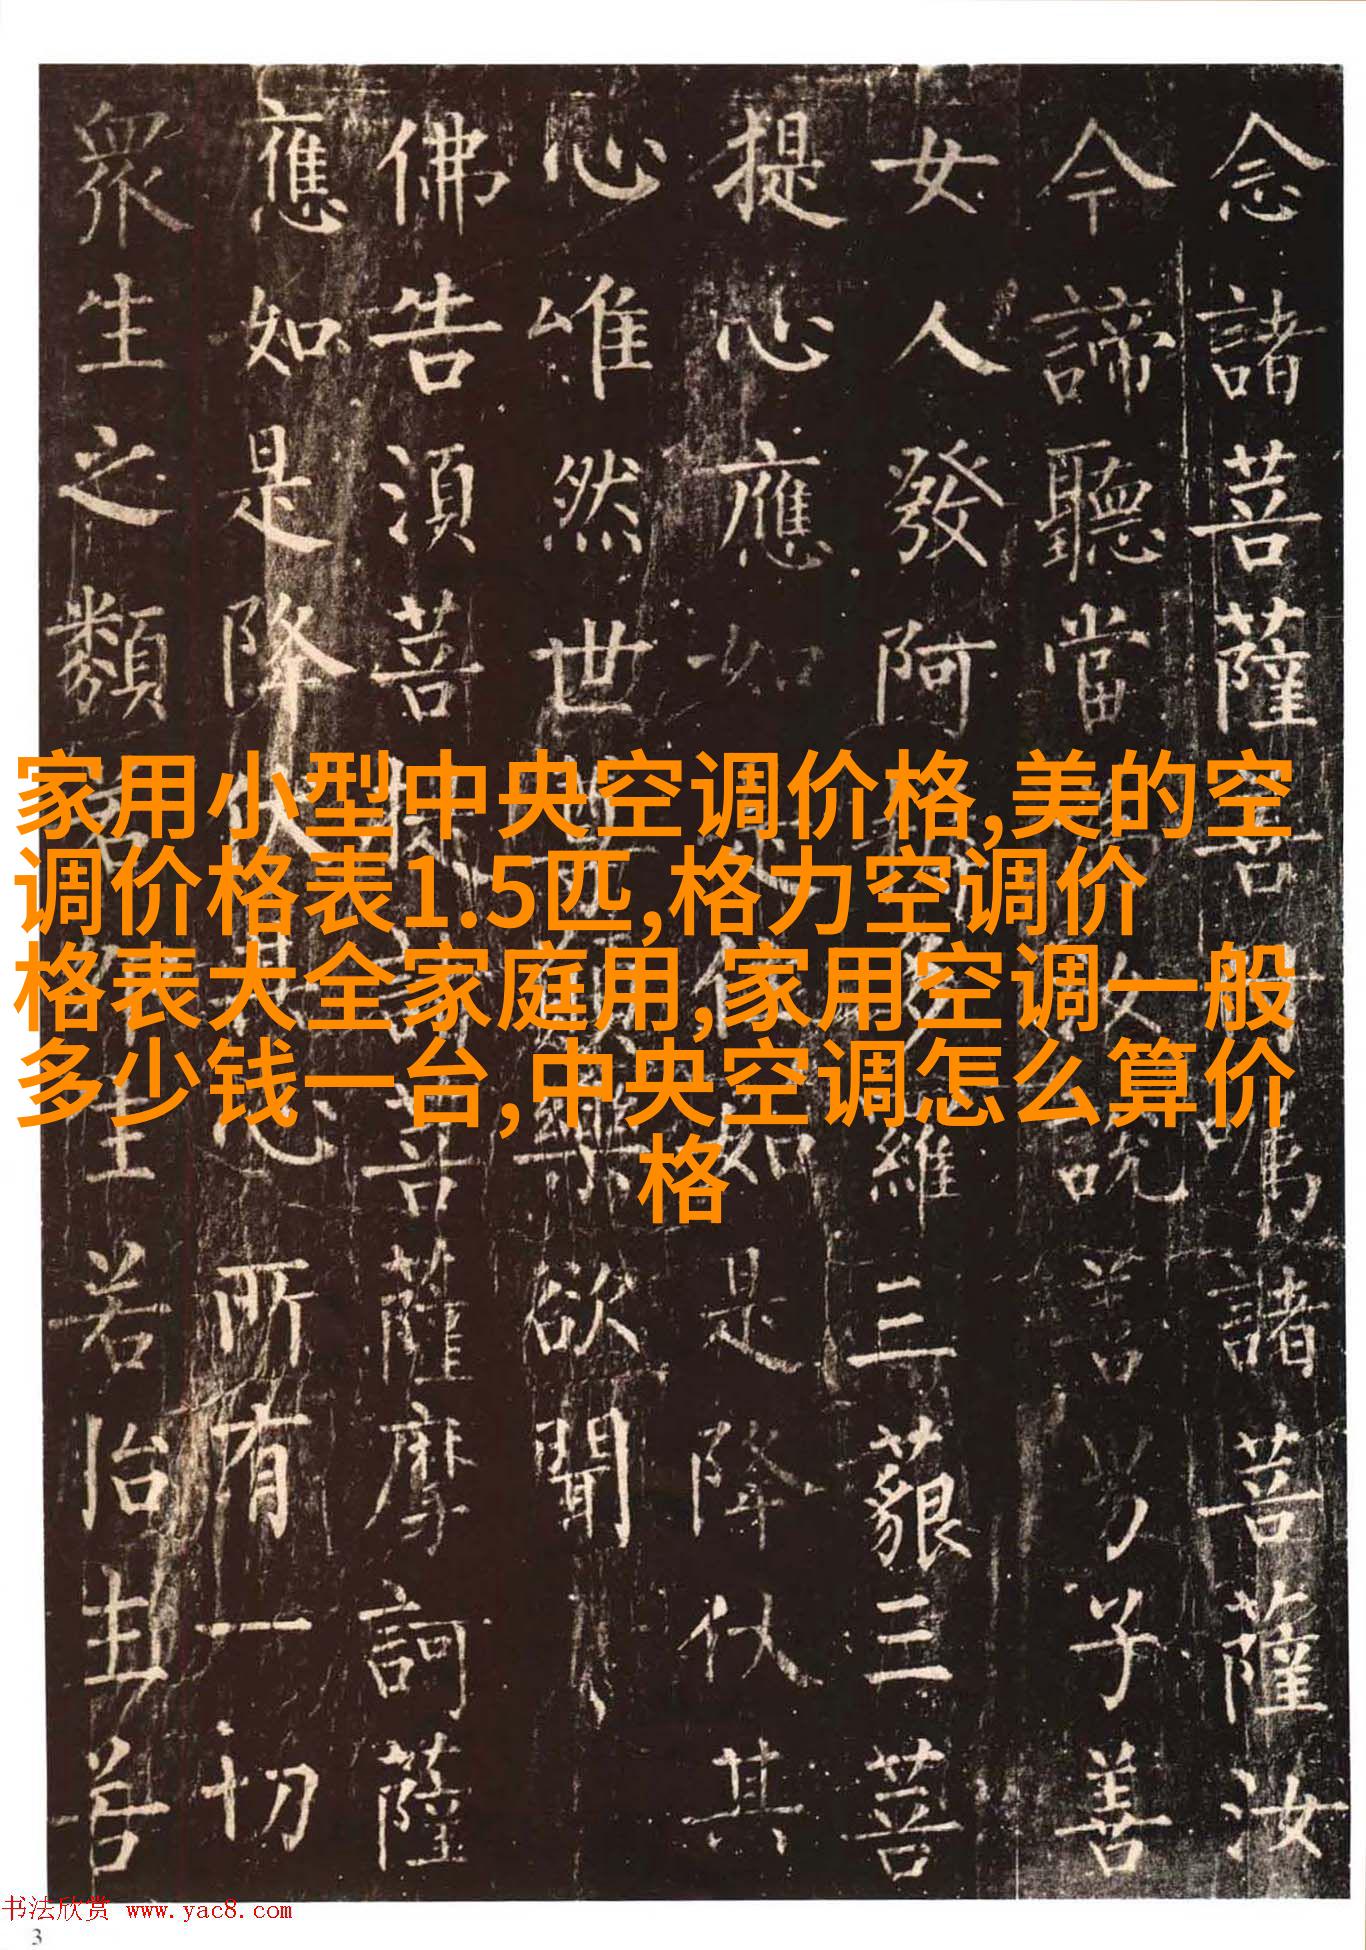 念諸菩薩善付囑諸菩薩汝
今諦聽當汝說善男子善
女人發阿羅三藐三菩
提心應如是住如是降伏其
心唯然世尊願樂欲聞
佛告須菩提諸菩薩摩訶薩
應如是降伏其心所有一切
衆生之類若生若胎生若
家用小型中央空调价格,美的空
调价格表1.5匹,格力空调价
格表大全家庭用,家用空调一般
多少钱一台,中央空调怎么算价
格
书法欣赏 www.yac8.com
3